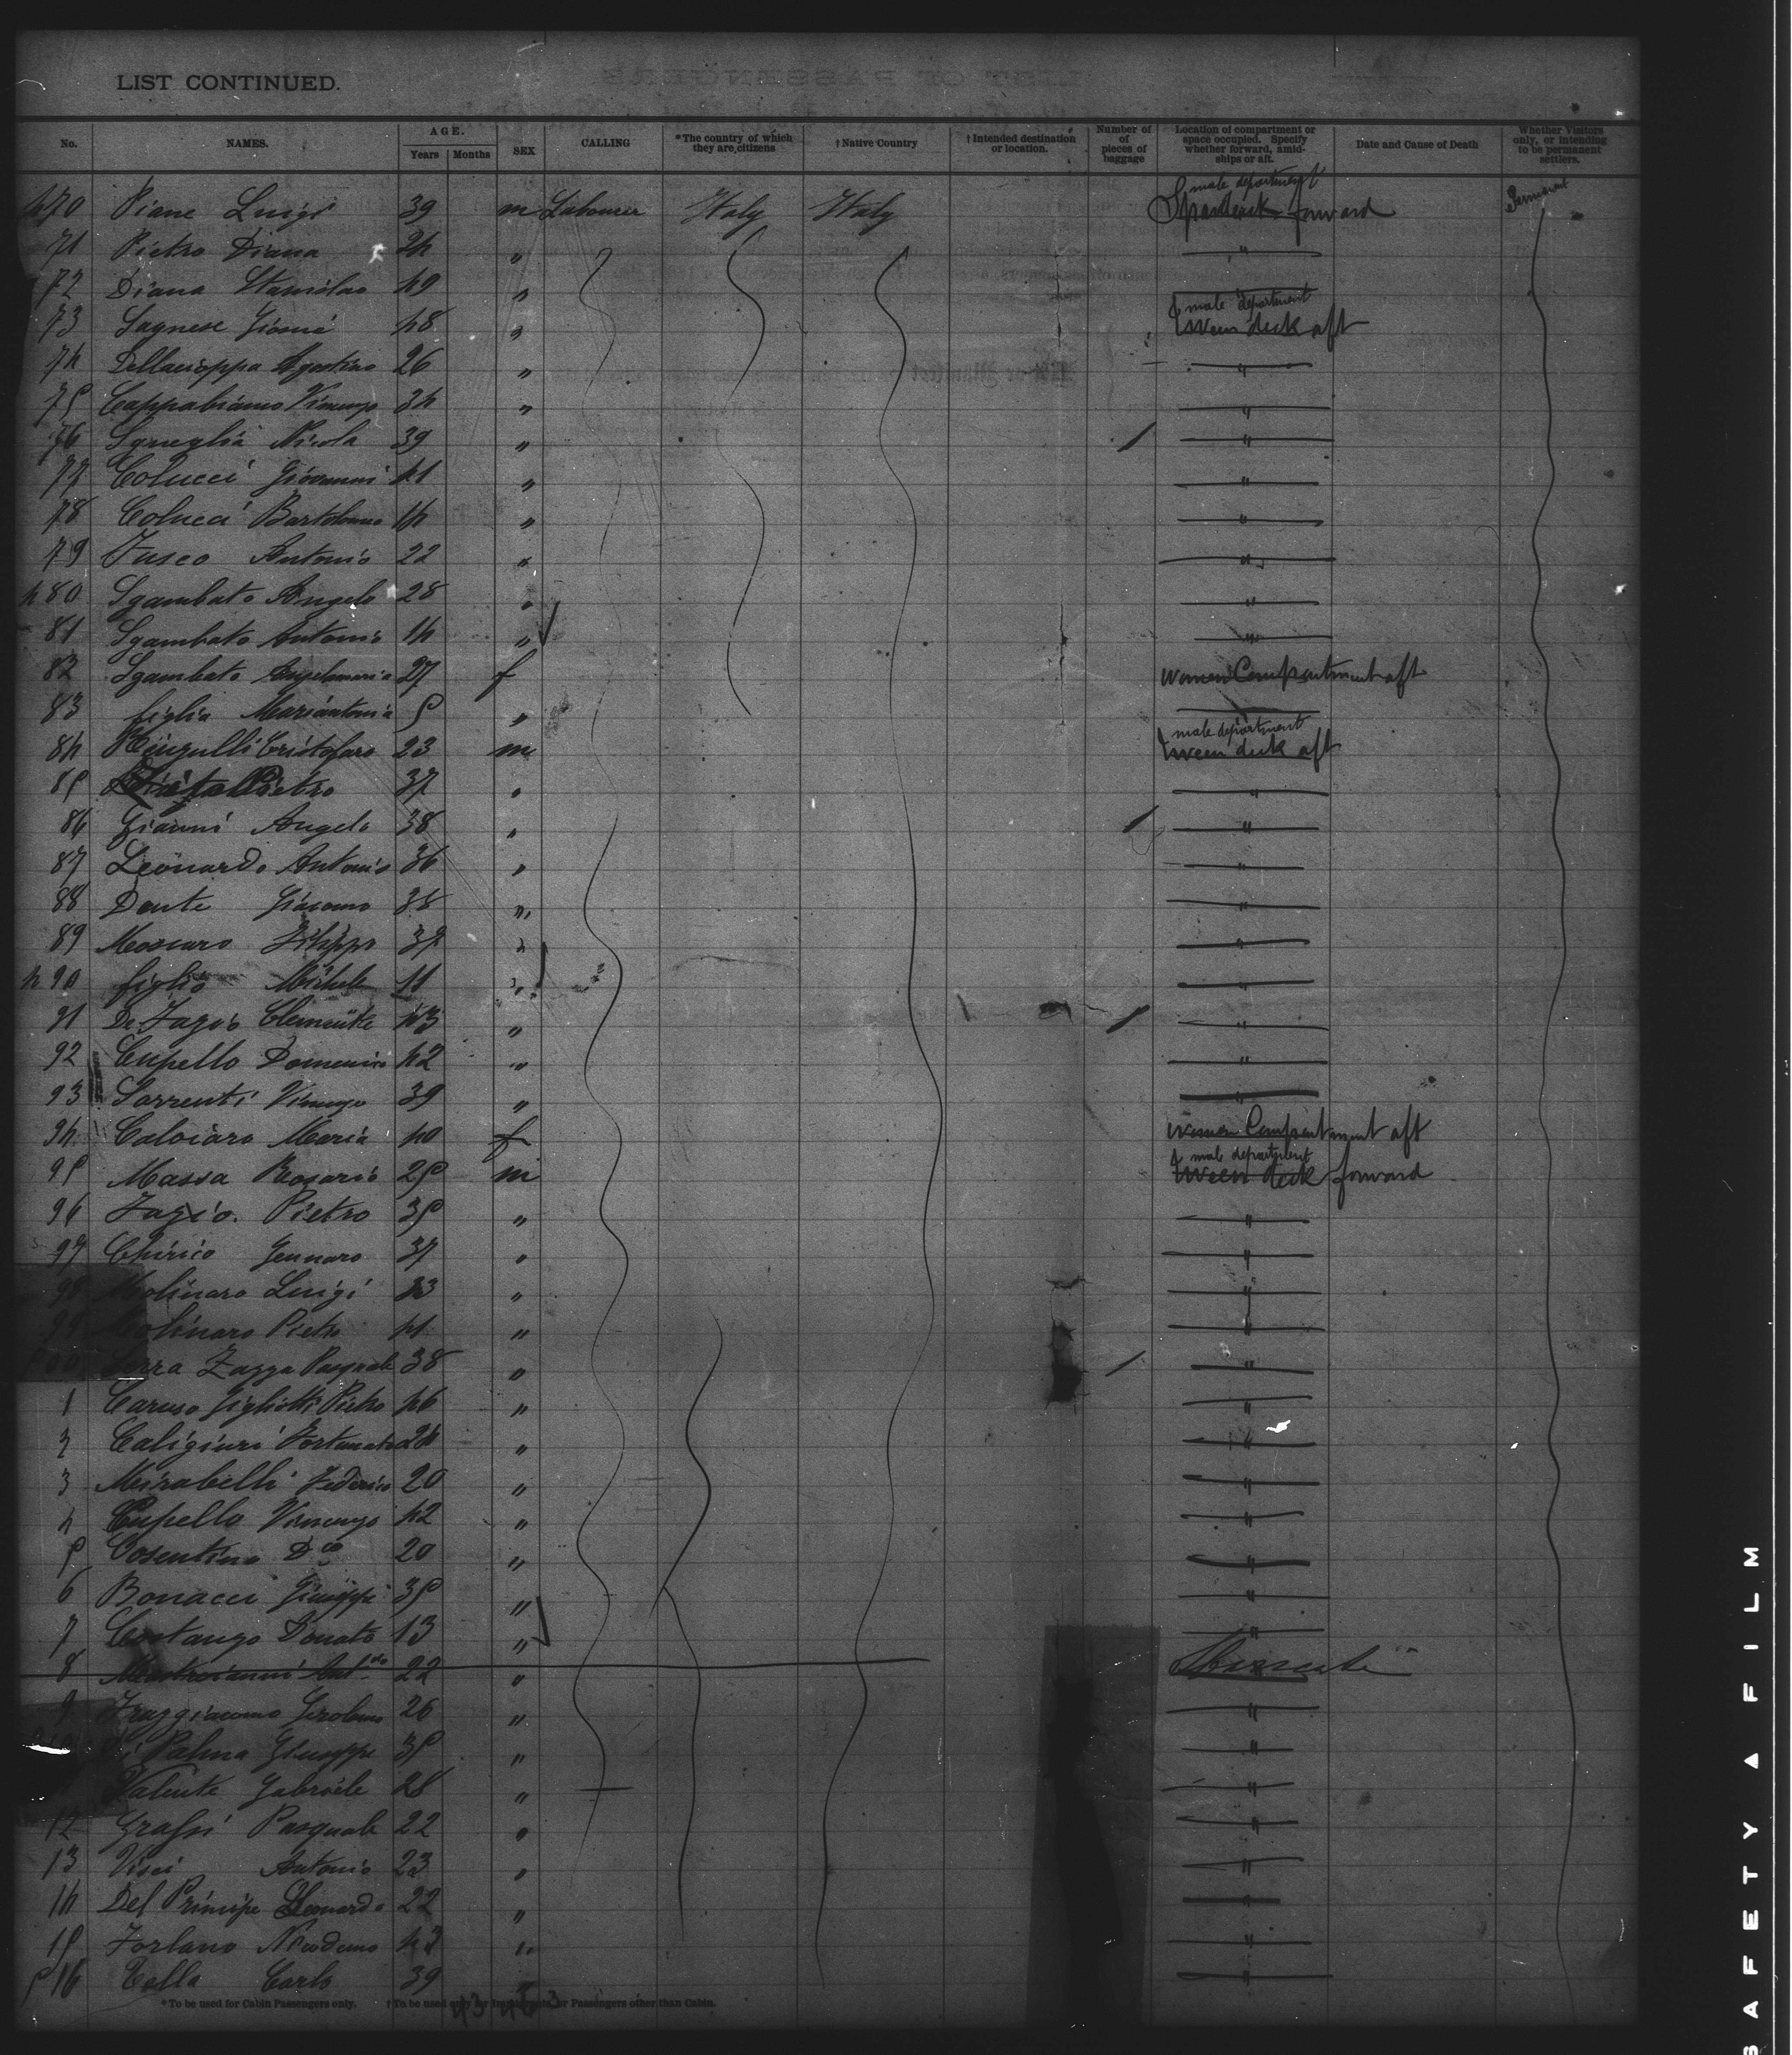 LIST CONTINUED.
No. NAMES. AGE. Years Months SEX CALLING *The country of which they are citizens †Native Country †Intended destination or location. Number of of pieces of baggage Location of compartment or space occupied. Specify whether forward, amidships or aft. Date and Cause of Death Whether Visitors only, or intending to be permanent settlers.
470 Piane Luigi 39 m Labourer Italy Italy male department forward Permanent
71 Pietro Diana 24 " "
72 Diana Stanislao 49 "
73 Sagnese 48 " male department tween deck aft
74 Agostino 26 " "
75 Cappabianco Vincenzo 34 " "
76 Sgueglia Nicola 39 " "
77 Colucci Giovanni 41 " "
78 Colucci Bartolomeo 14 " "
79 Fusco Antonio 22 " "
480 Sgambato Angelo 28 " "
81 Sgambato Antonio 14 " "
82 Sgambato Angelamaria 27 f women Compartment aft
83 figlia Mariantonia 5 " "
84 Cristofaro 23 m male department tween deck aft
85 Pietro 37 " "
86 Gianni Angelo 38 " "
87 Leonardo Antonio 36 " "
88 Dente Giacomo 38 " "
89 Moscuro Filippo 37 " "
490 figlio Michele 11 " "
91 De Fazio Clemente 43 " "
92 Cupello Domenico 42 " "
93 Sorrenti Vincenzo 39 " "
94 Caloiaro Maria 40 f women Compartment aft
95 Massa Rosario 25 m male department tween deck forward
96 Fazio Pietro 35 " "
97 Chirico Gennaro 37 " "
98 Molinaro Luigi 33 " "
99 Molinaro Pietro 41 " "
500 Serra Zagga Pasquale 38 " "
1 Caruso Gigliotti Pietro 46 " "
2 Caligiuri Fortunato 24 " "
3 Mirabelli Federico 20 " "
4 Cupello Vincenzo 42 " "
5 Cosentino Dco 20 " "
6 Bonacci Giuseppe 35 " "
7 Costanzo Donato 13 " "
8 Mastroianni Antº 22 "
9 Fraggiacomo Gerolamo 26 " "
Di Palma Giuseppe 35 " "
Valente Gabriele 28 " "
12 Grassi Pasquale 22 " "
13 Visci Antonio 23 " "
14 Del Principe Leonardo 22 " "
15 Forlano Nicodemo 43 " "
516 Tella Carlo 39 "
*To be used for Cabin Passengers only. †To be used only for Immigrants or Passengers other than Cabin.
SAFETY ▲ FILM